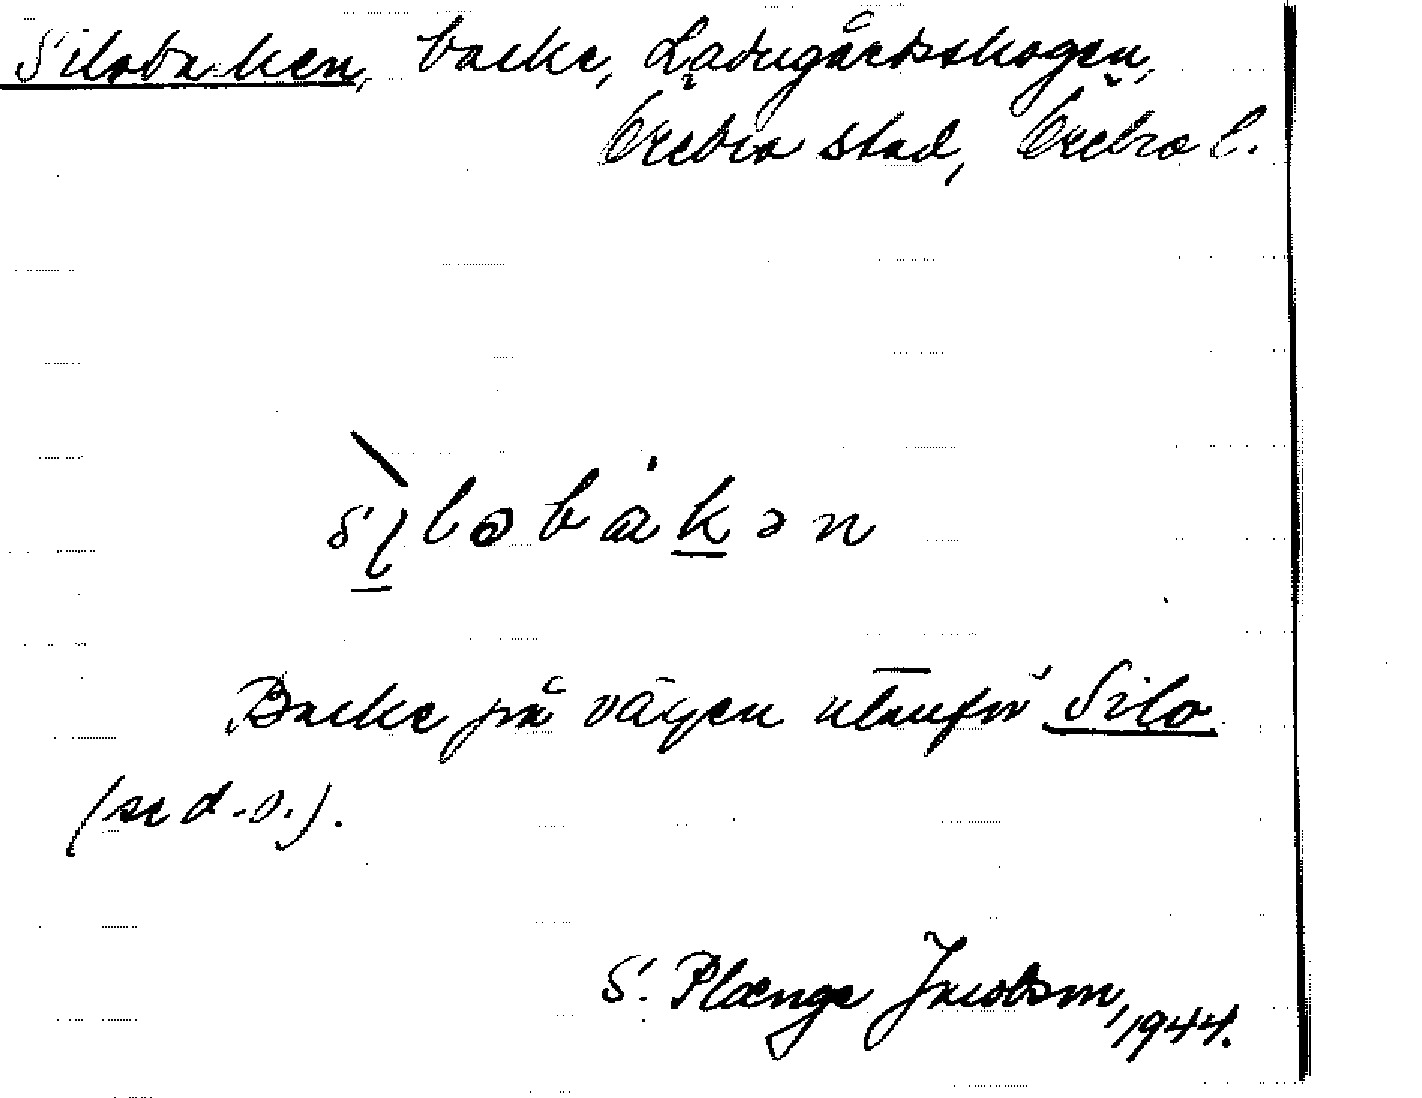 Silobacken, backe, Ladugårdsskogen,
Örebro stad, Örebro l.
siləbakən
Backe på vägen utanför Silo
(se d.o.).
S. Plænge Jacobson, 1944.